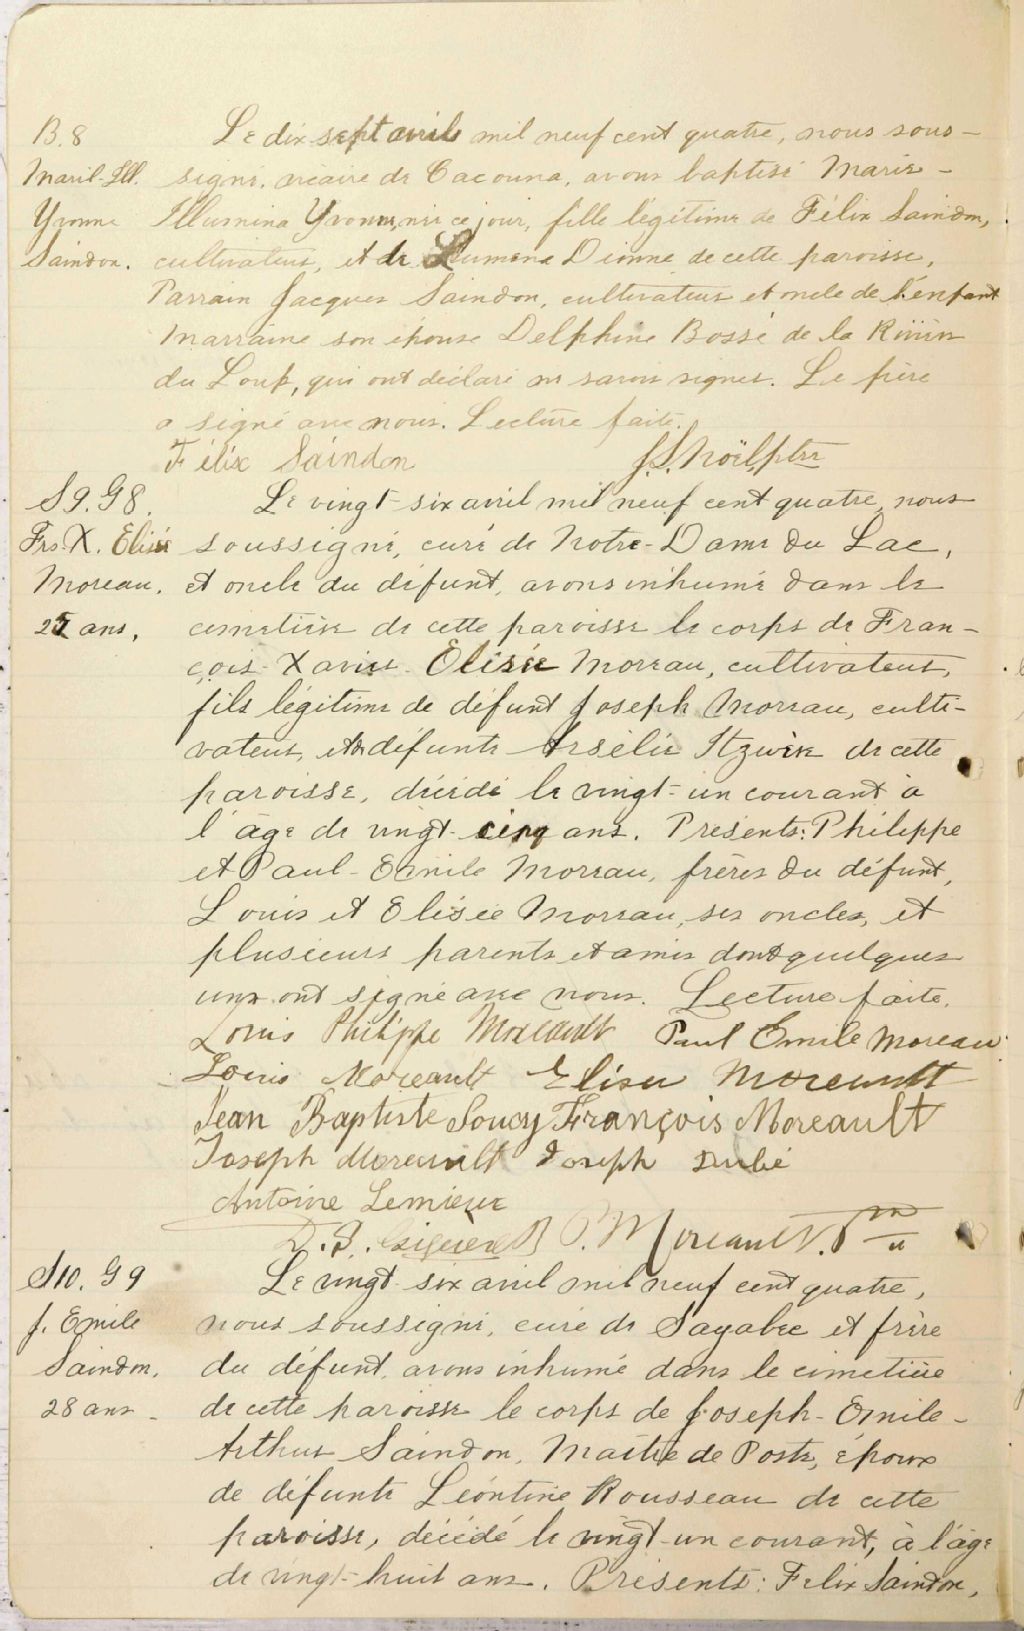 B.8
Marie-Ill.
Yvonne
Saindon.
Le dix-sept avril mil neuf cent quatre, nous sous-
signé, vicaire de Cacouna, avons baptisé Marie-
Illumina Yvonne, née ce jour, fille légitime de Félix Saindon,
cultivateur, et de Lumena Dionne de cette paroisse,
Parrain Jacques Saindon, cultivateur et oncle de l'enfant
Marraine son épouse Delphine Bossé de la Rivière
du Loup, qui ont déclaré ne savoir signer. Le père
a signé avec nous. Lecture faite.
Félix Saindon J.S. Noël, ptre
S9. G8.
Frs-X. Elisée
Moreau.
25 ans,
Le vingt-six avril mil neuf cent quatre, nous
soussigné, curé de Notre-Dame du Lac,
et oncle du défunt, avons inhumé dans le
cimetière de cette paroisse le corps de Fran-
çois-Xavier-Elisée Moreau, cultivateur,
fils légitime de défunt Joseph Moreau, culti-
vateur, et de défunte Arsélie Itzwire de cette
paroisse, décédé le vingt-un courant à
l'âge de vingt-cinq ans. Présents: Philippe
et Paul-Emile Moreau, frères du défunt,
Louis et Elisée Moreau, ses oncles, et
plusieurs parents et amis dont quelques
uns ont signé avec nous. Lecture faite.
Louis Philippe Moreault Paul Emile Moreau
Louis Moreault Elisee Moreault
Jean Baptiste Soucy François Moreault
Joseph Moreault Joseph Dubé
Antoine Lemieux
P. Moreault. Ptre
S10. G9
J. Emile
Saindon.
28 ans
Le vingt-six avril mil neuf cent quatre,
nous soussigné, curé de Sayabec et frère
du défunt, avons inhumé dans le cimetière
de cette paroisse le corps de Joseph-Emile-
Arthur Saindon, Maître de Poste, époux
de défunte Léontine Rousseau de cette
paroisse, décédé le vingt-un courant, à l'âge
de vingt-huit ans. Présents: Felix Saindon,